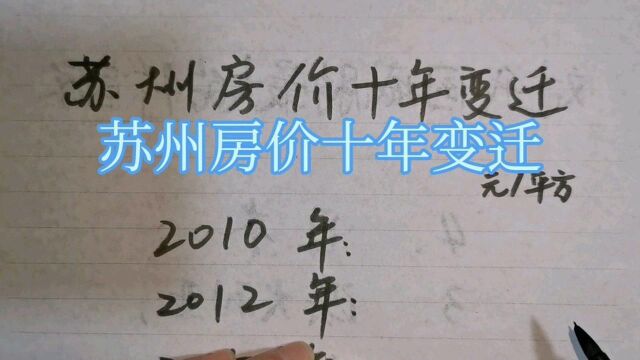 苏州房价十年变迁
苏州房价十年变迁
元/平方
2010年:
2012年: